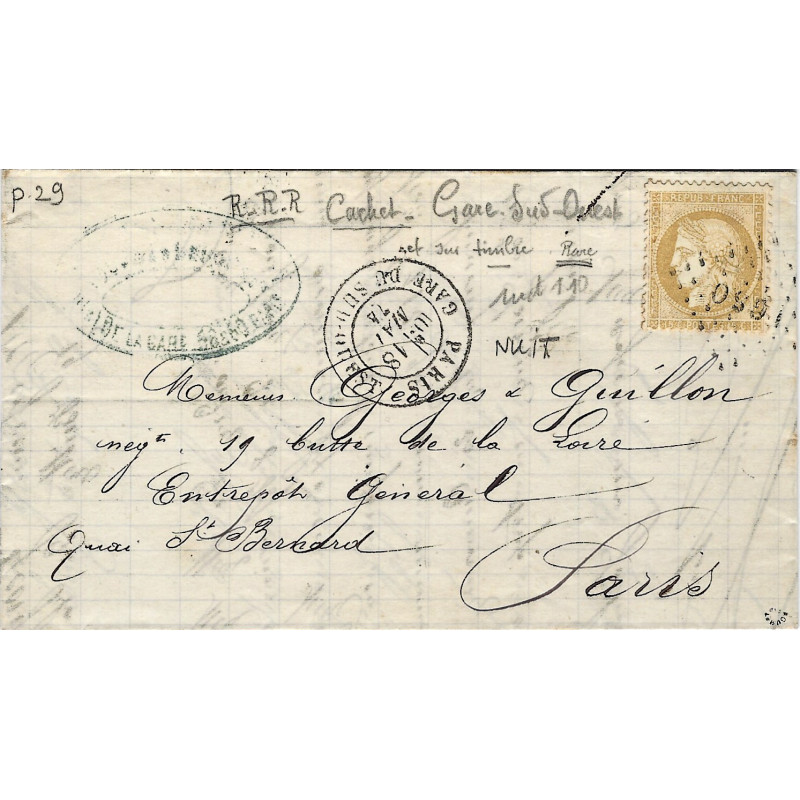 p.29
R.R.R Cachet Gare Sud-Ouest
ref sur timbre Rare
ind 110
NUIT
REPUB FRANC
GSO
PARIS
GARE DU SUD-OUEST
18
MAI
74
DE LA GARE
Messieurs Georges & Guillon
negts. 19 butte de la Loire
Entrepôt Général
Quai St Bernard
Paris